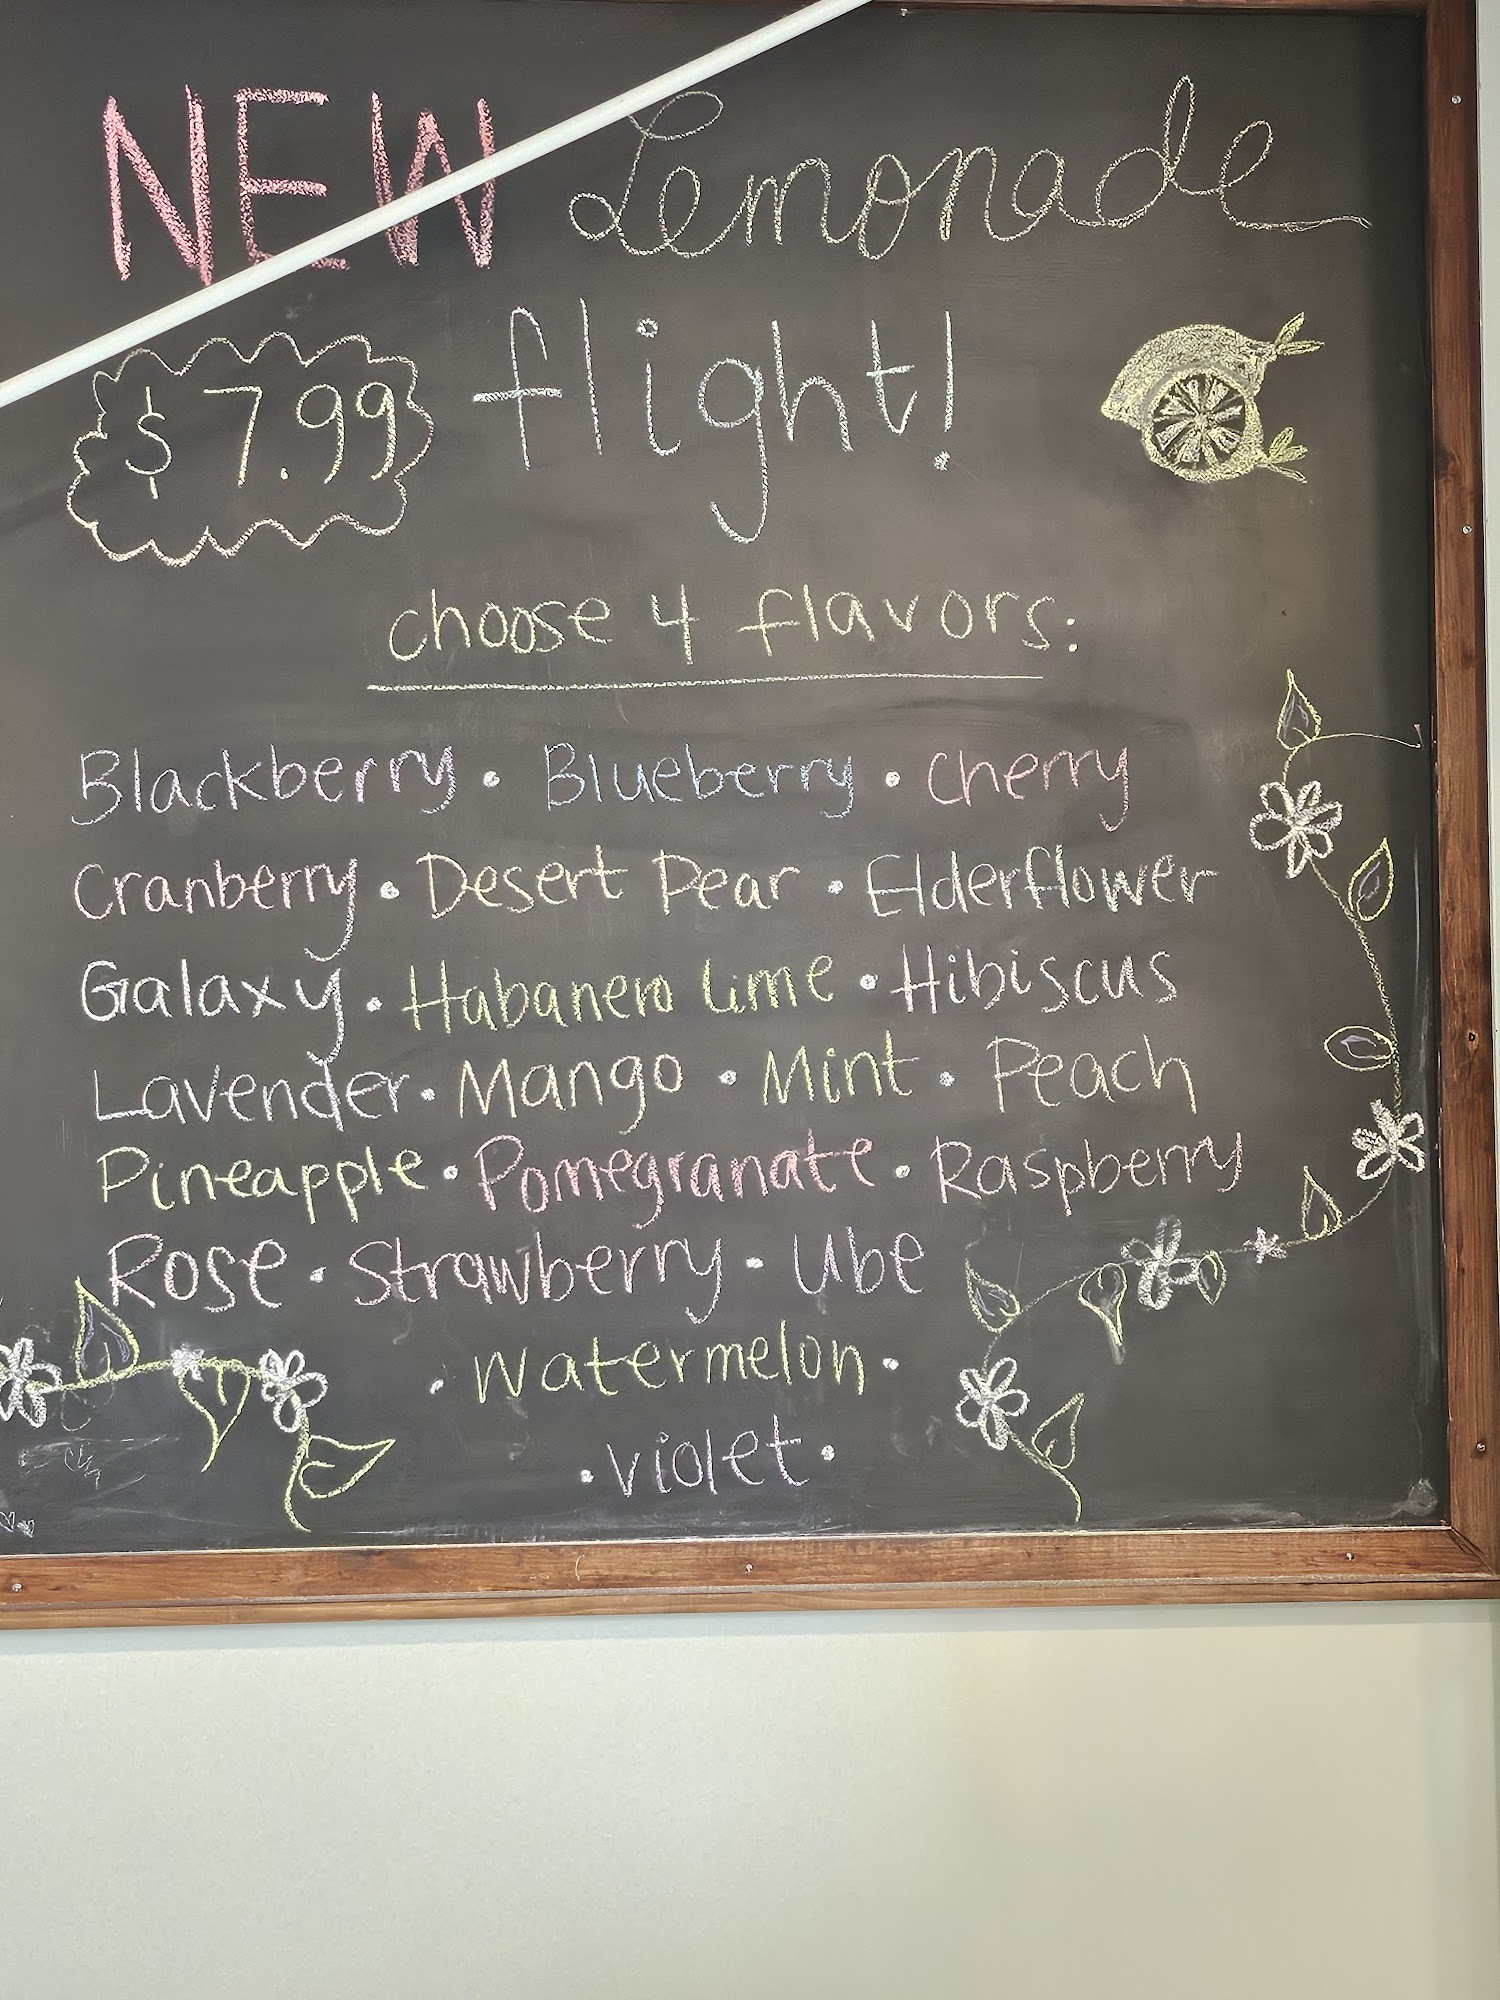 NEW Lemonade
$7.99 flight!
choose 4 flavors:
Blackberry • Blueberry • Cherry
Cranberry • Desert Pear • Elderflower
Galaxy • Habanero Lime • Hibiscus
Lavender • Mango • Mint • Peach
Pineapple • Pomegranate • Raspberry
Rose • Strawberry • Ube
• Watermelon •
• Violet •